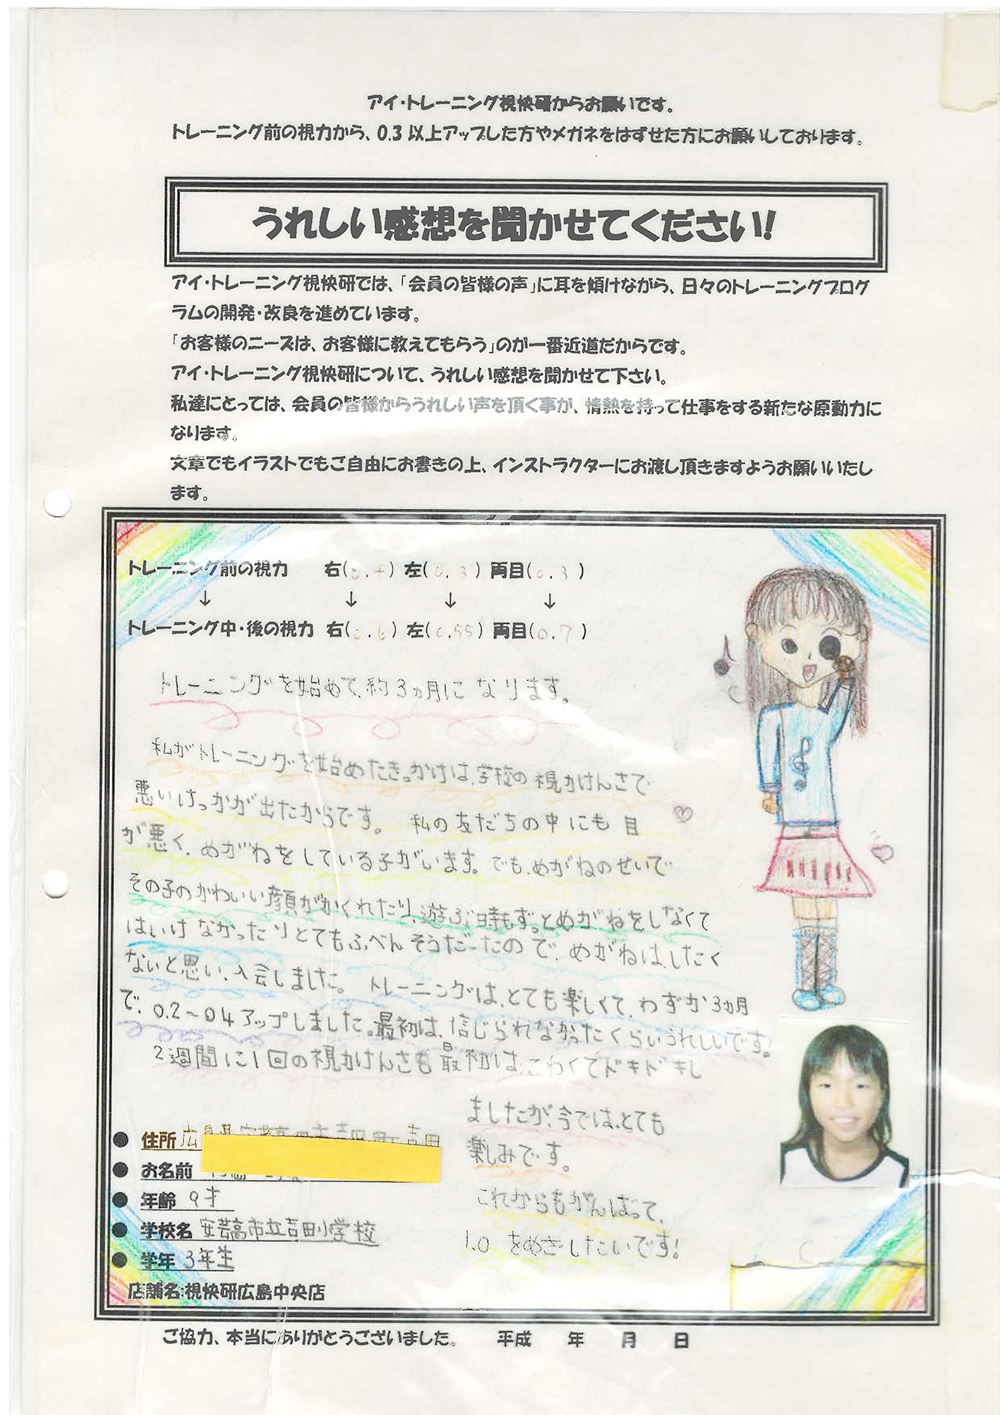 アイ・トレーニング視快研からお願いです。
トレーニング前の視力から、0.3以上アップした方やメガネをはずせた方にお願いしております。
うれしい感想を聞かせてください!
アイ・トレーニング視快研では、「会員の皆様の声」に耳を傾けながら、日々のトレーニングプログ
ラムの開発・改良を進めています。
「お客様のニーズは、お客様に教えてもらう」のが一番近道だからです。
アイ・トレーニング視快研について、うれしい感想を聞かせて下さい。
私達にとっては、会員の皆様からうれしい声を頂く事が、情熱を持って仕事をする新たな原動力に
なります。
文章でもイラストでもご自由にお書きの上、インストラクターにお渡し頂きますようお願いいたし
ます。
トレーニング前の視力 右(0.4) 左(0.3) 両目(0.3)
↓ ↓ ↓ ↓
トレーニング中・後の視力 右(0.6) 左(0.55) 両目(0.7)
トレーニングを始めて、約3ヵ月になります。
私がトレーニングを始めたきっかけは、学校の視力けんさで
悪いけっかが出たからです。 私の友だちの中にも目
が悪く、めがねをしている子がいます。でも、めがねのせいで
その子のかわいい顔がかくれたり、遊ぶ時もずっとめがねをしなくて
はいけなかったりとてもふべんそうだったので、めがねは、したく
ないと思い、入会しました。 トレーニングは、とても楽しくて、わずか3ヵ月
で、0.2～0.4アップしました。最初は、信じられなかったくらいうれしいです!
2週間に1回の視力けんさも最初は、こわくてドキドキし
ましたが、今では、とても
楽しみです。
これからもがんばって、
1.0をめざしたいです!
● 住所 広島県
● お名前
● 年齢 9才
● 学校名 安芸高市立吉田小学校
● 学年 3年生
店舗名:視快研広島中央店
ご協力、本当にありがとうございました。 平成 年 月 日